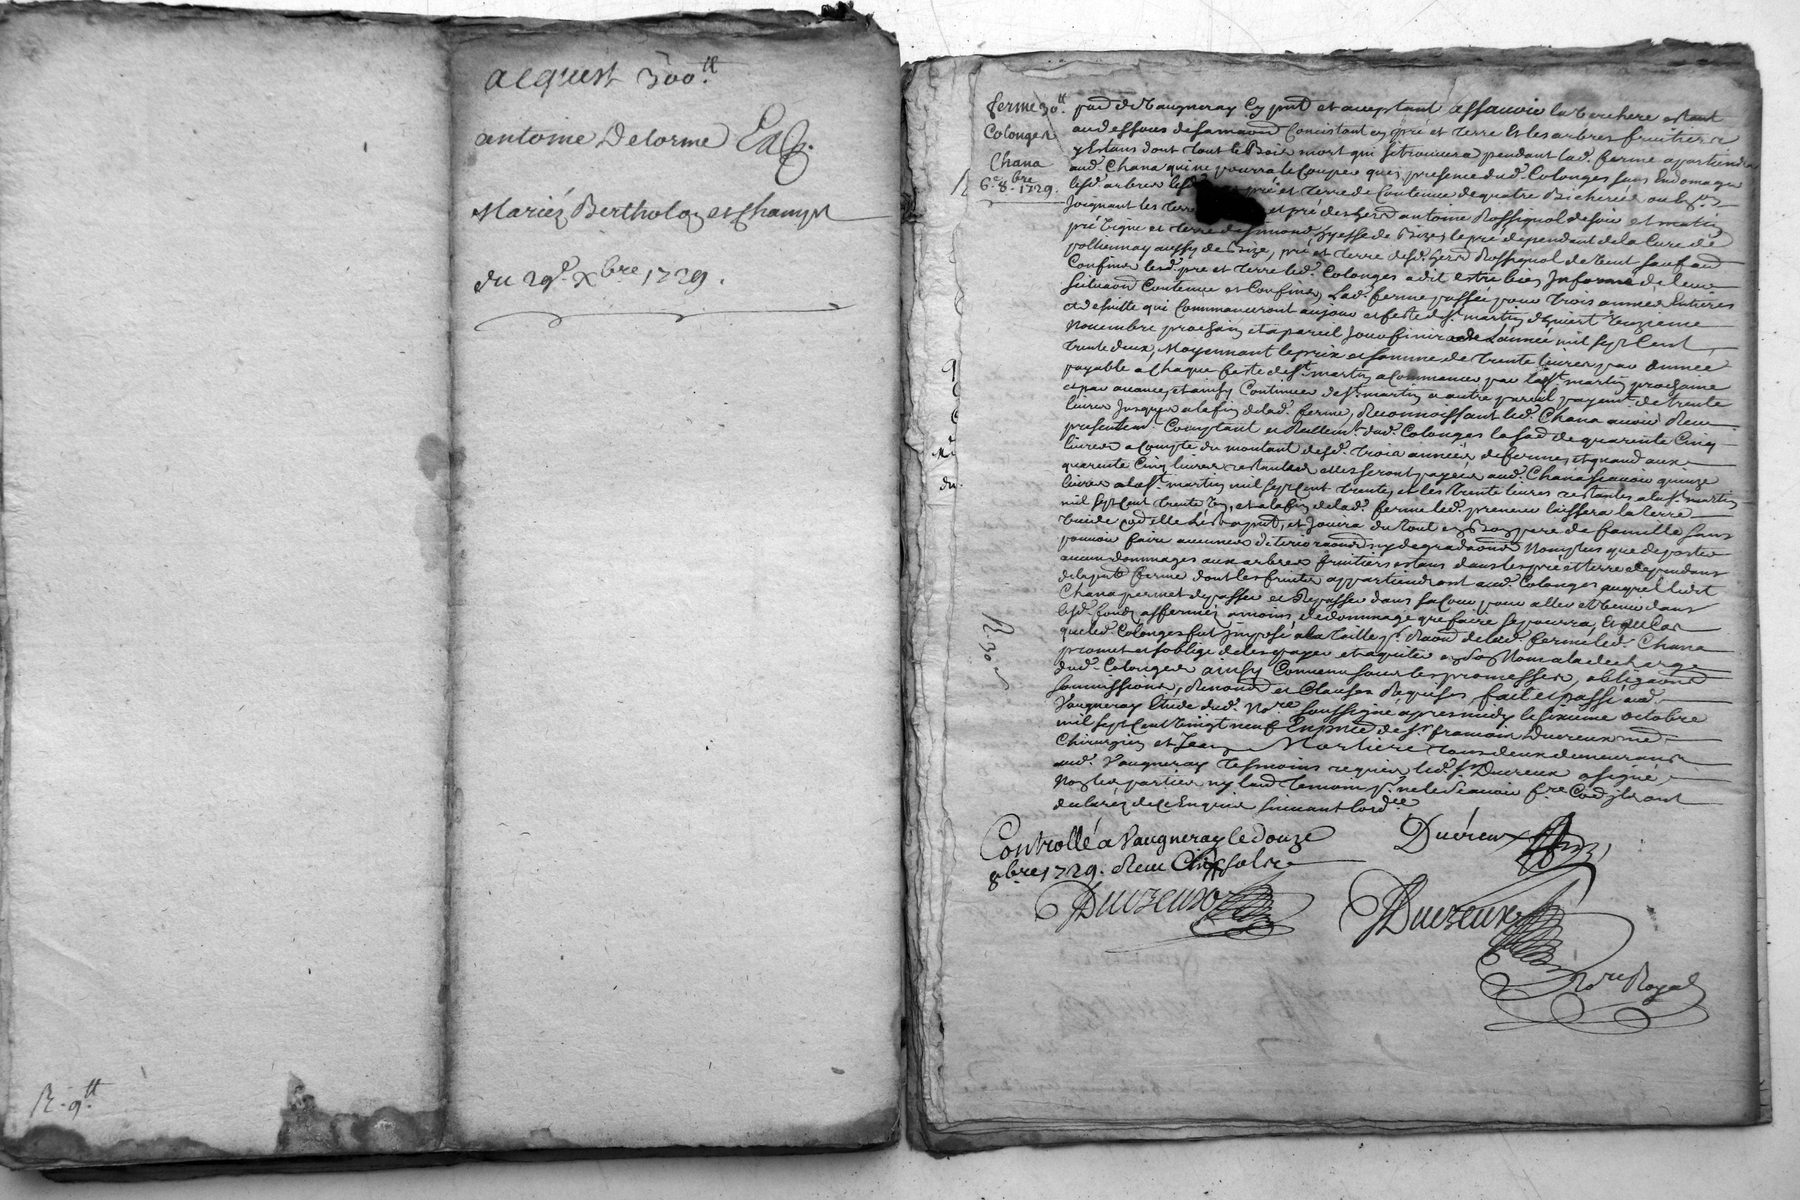 acquest 300.tt
antoine Delorme
Mariés Bertholoz et Champt
du 29e. Xbre 1729.
R. 9.tt
ferme 30tt
Colonges
Chana
6e. 8.bre 1729.
R
R. 30 s
de Vaugneray Cy pnt et acceptant assavoir la verchere estant
au dessous de sa maison Concistant en pré et terre et les arbres fruitiers
y Estans dont tout le Bois mort qui s'i trouvera pendant lad. ferme apartiendra
aud. Chana qui ne pourra le Coupper qu'en presence dud. Colonges sans Endomager
lesd. arbres pré et terre de Contenue de quatre Bicherées ou
Joignant les terre et pré des antoine Rossignol de soir et matin
pré vigne et terre de de Bize, le pré dependant de la Cure de
pollionnay aussy de Bize, pré et terre desd. Rossignol de vent sauf
Confins lesd. pré et terre led. Colonges a dit estre bien Informé de leur
situaon Contenue et Confins, Lad. ferme passée pour trois années Entieres
et de suitte qui Commanceront au jour et feste de st. martin d'hiver onzieme
Novembre prochain et a pareil Jour finir de L'année mil sept Cent
trente deux, Moyennant le prix et somme de trente livres par année
payable a Chaque feste de st. martin a Commancer par la st. martin prochaine
et par avance, et ainsy Continuer de st. martin a autre pareil payemt. de trente
livres Jusques a la fin de lad. ferme, Reconnoissant led. Chana avoir Receu
presentemt. Comptant et Reellemt. dud. Colonges la so[mm]e de quarente Cinq
livres a Compte du montant desd. trois années de ferme, et quand aux
quarente Cinq livres restantes elles seront payées aud. Chana scavoir quinze
livres a la st. martin mil sept Cent trente, et les trente livres restantes a la st. martin
mil sept Cent trente un, et a la fin de lad. ferme led. preneur laissera la terre
vuide Co[mm]e elle Lest a pnt, et Jouira du tout en Bon pere de famille sans
pouvoir faire aucunes deterioraons ny degradaons Non plus que de porter
aucun dommages aux arbres fruitiers estans dans les pré et terre dependans
de la pnte ferme dont les fruits appartiendront aud. Colonges auquel ledit
Chana permet de passer et Repasser dans sa Cour pour aller et venir dans
lesd. fonds affermés a moins de dommage que faire se pourra, Et au Cas
que led. Colonges fut Imposé a la taille pr. Raon de lad. ferme led. Chana
promet et s'oblige de les payer et aquiter en son Nom a la decharge
dud. Colonges ainsy Convenu sous les promesses, obligaons
soumissions, Renonons et Clauses Requises fait et passé aud.
Vaugneray Etude dud. Nore. soussigné apres midy le sixieme octobre
mil sept Cent vingt neuf En pnce de sr. francois Duvreux me
Chirurgien et Jean Mortiere tous deux demeurans
aud. Vaugneray tesmoins requis led. sr. Duvreux a signé
Non les parties ny laud temoin pr. ne le scavoir f.re Co[mm]e Ils ont
declarés de Ce Enquis suivant lord.ce
Controllé a Vaugneray le douze
8bre 1729. Receu Cinq sols
Duvreux
Duvreux
Duvreux
Nore Royal